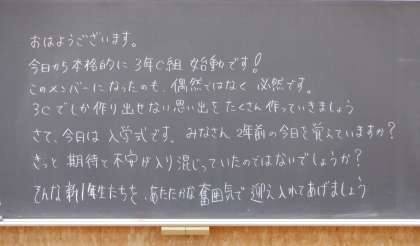 おはようございます。
今日から本格的に 3年C組 始動です!
このメンバーになったのも、偶然ではなく 必然です。
3Cでしか作り出せない思い出をたくさん作っていきましょう
さて、今日は 入学式です。みなさん 2年前の今日を覚えていますか?
きっと 期待で不安が入り混じっていたのではないでしょうか?
そんな新1年生たちを、あたたかな雰囲気で 迎え入れてあげましょう